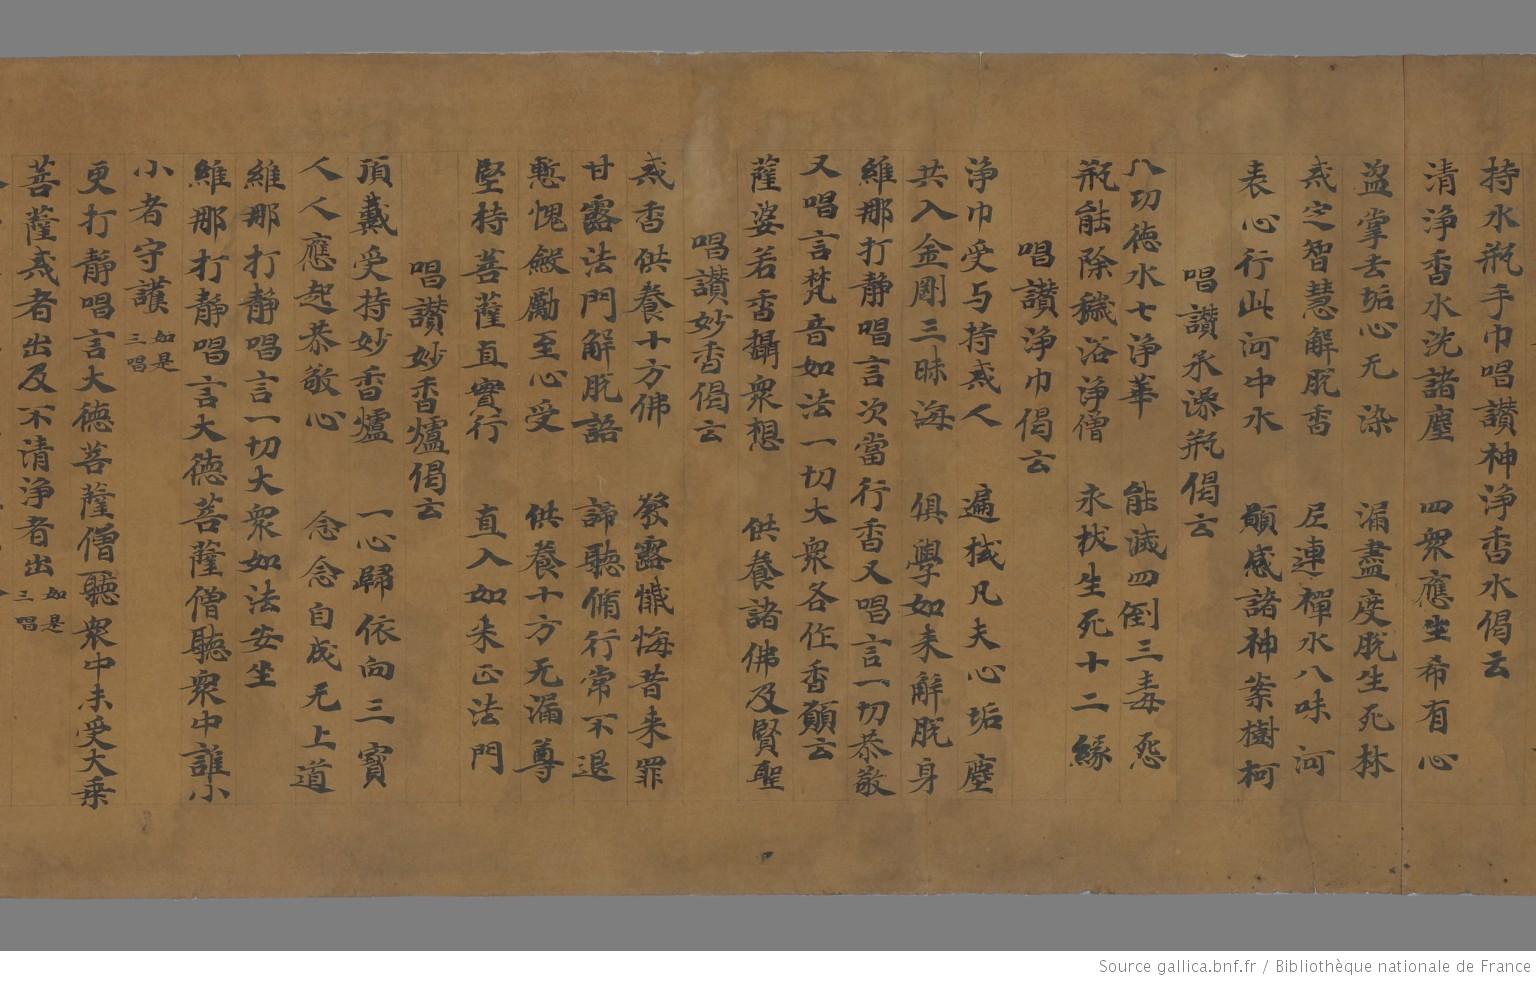 持水瓶手巾唱讚神淨香水偈云
清淨香水洗諸塵　四衆應坐希有心
盗掌去垢心无染　漏盡度脱生死林
戒定智慧解脱香　尼連禪水八味河
表心行此河中水　願感諸神柰樹柯
唱讚承添瓶偈云
八功徳水七淨華　能滅四倒三毒怨
瓶能除穢浴淨僧　永拔生死十二緣
唱讚淨巾偈云
淨巾受与持戒人　遍拭凡夫心垢塵
共入金剛三昧海　俱學如来解脱身
維那打靜唱言次當行香又唱言一切恭敬
又唱言梵音如法一切大衆各作香願云
薩婆若香攝衆想　供養諸佛及賢聖
唱讚妙香偈云
戒香供養十方佛　發露懺悔昔来罪
甘露法門解脱語　諦聽脩行常不退
慙愧慇勵至心受　供養十方无漏尊
堅持菩薩真實行　直入如来正法門
唱讚妙香爐偈云
頂戴受持妙香爐　一心歸依向三寳
人人應起恭敬心　念念自成无上道
維那打靜唱言一切大衆如法安坐
維那打靜唱言大德菩薩僧聽衆中誰小
小者守護 如是三唱
更打靜唱言大德菩薩僧聽衆中未受大乗
菩薩戒者出及不清淨者出 如是三唱
Source gallica.bnf.fr / Bibliothèque nationale de France